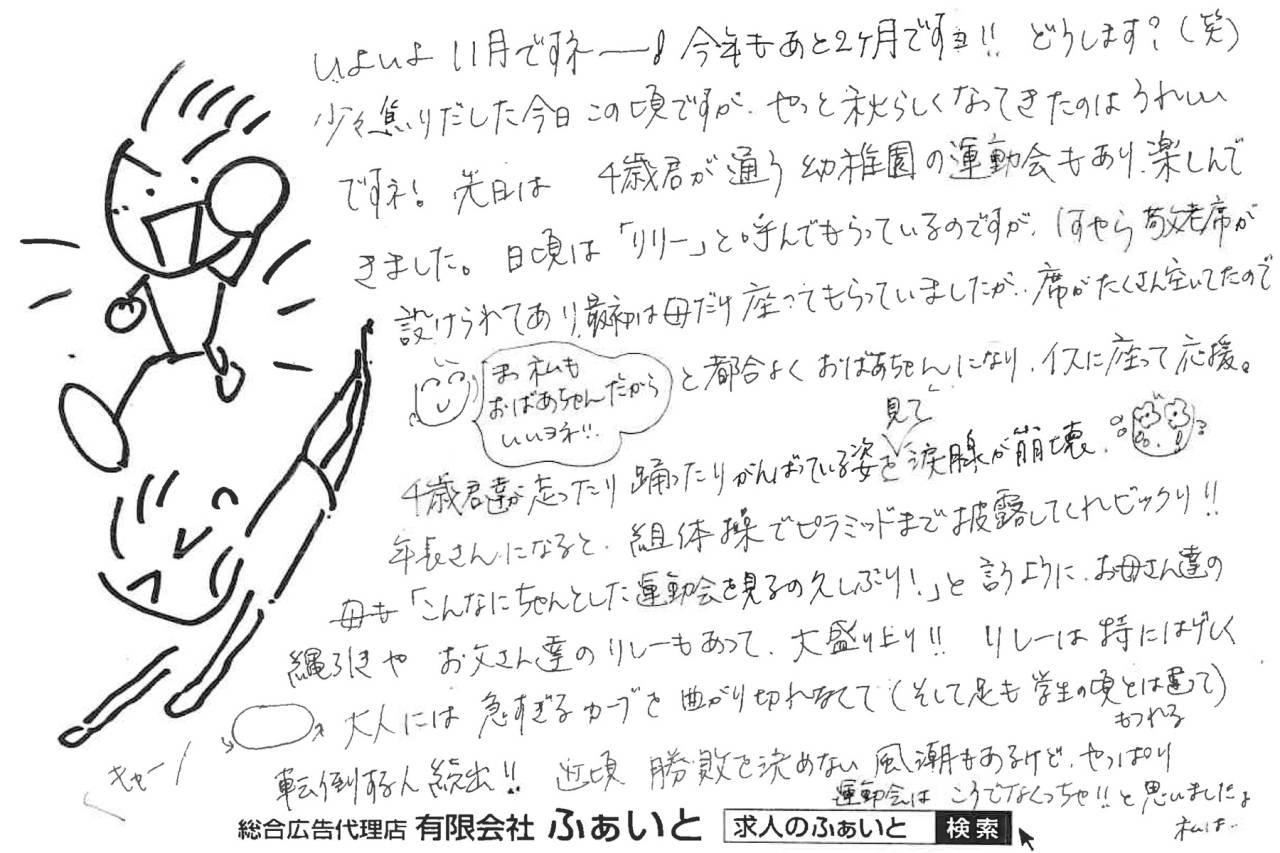 いよいよ11月ですネー! 今年もあと2ヶ月ですョ!! どうします?(笑)
少々焦りだした今日この頃ですが、やっと秋らしくなってきたのはうれしい
ですネ! 先日は 4歳君が通う幼稚園の運動会もあり、楽しんで
きました。日頃は「リリー」と呼んでもらっているのですが、 敬老席が
設けられてあり、最初は母だけ座ってもらっていましたが、席がたくさん空いてたので
まぁ私も
おばあちゃんだから
いいヨネ!!
と都合よくおばあちゃんになり、イスに座って応援。
4歳君達が走ったり踊ったりがんばっている姿を見て涙腺が崩壊、
年長さんになると、組体操でピラミッドまで披露してくれビックリ!!
母も「こんなにちゃんとした運動会を見るの久しぶり!」と言うように、お母さん達の
縄引きや お父さん達のリレーもあって、大盛り上り!! リレーは特にはげしく
大人には急すぎるカーブを曲がり切れなくて(そして足も学生の頃とは違って)
もつれる
転倒する人続出!! 近頃 勝敗を決めない風潮もあるけど、やっぱり
運動会は こうでなくっちゃ!!と思いましたよ
私は..
キャー!
総合広告代理店 有限会社 ふぁいと 求人のふぁいと 検索